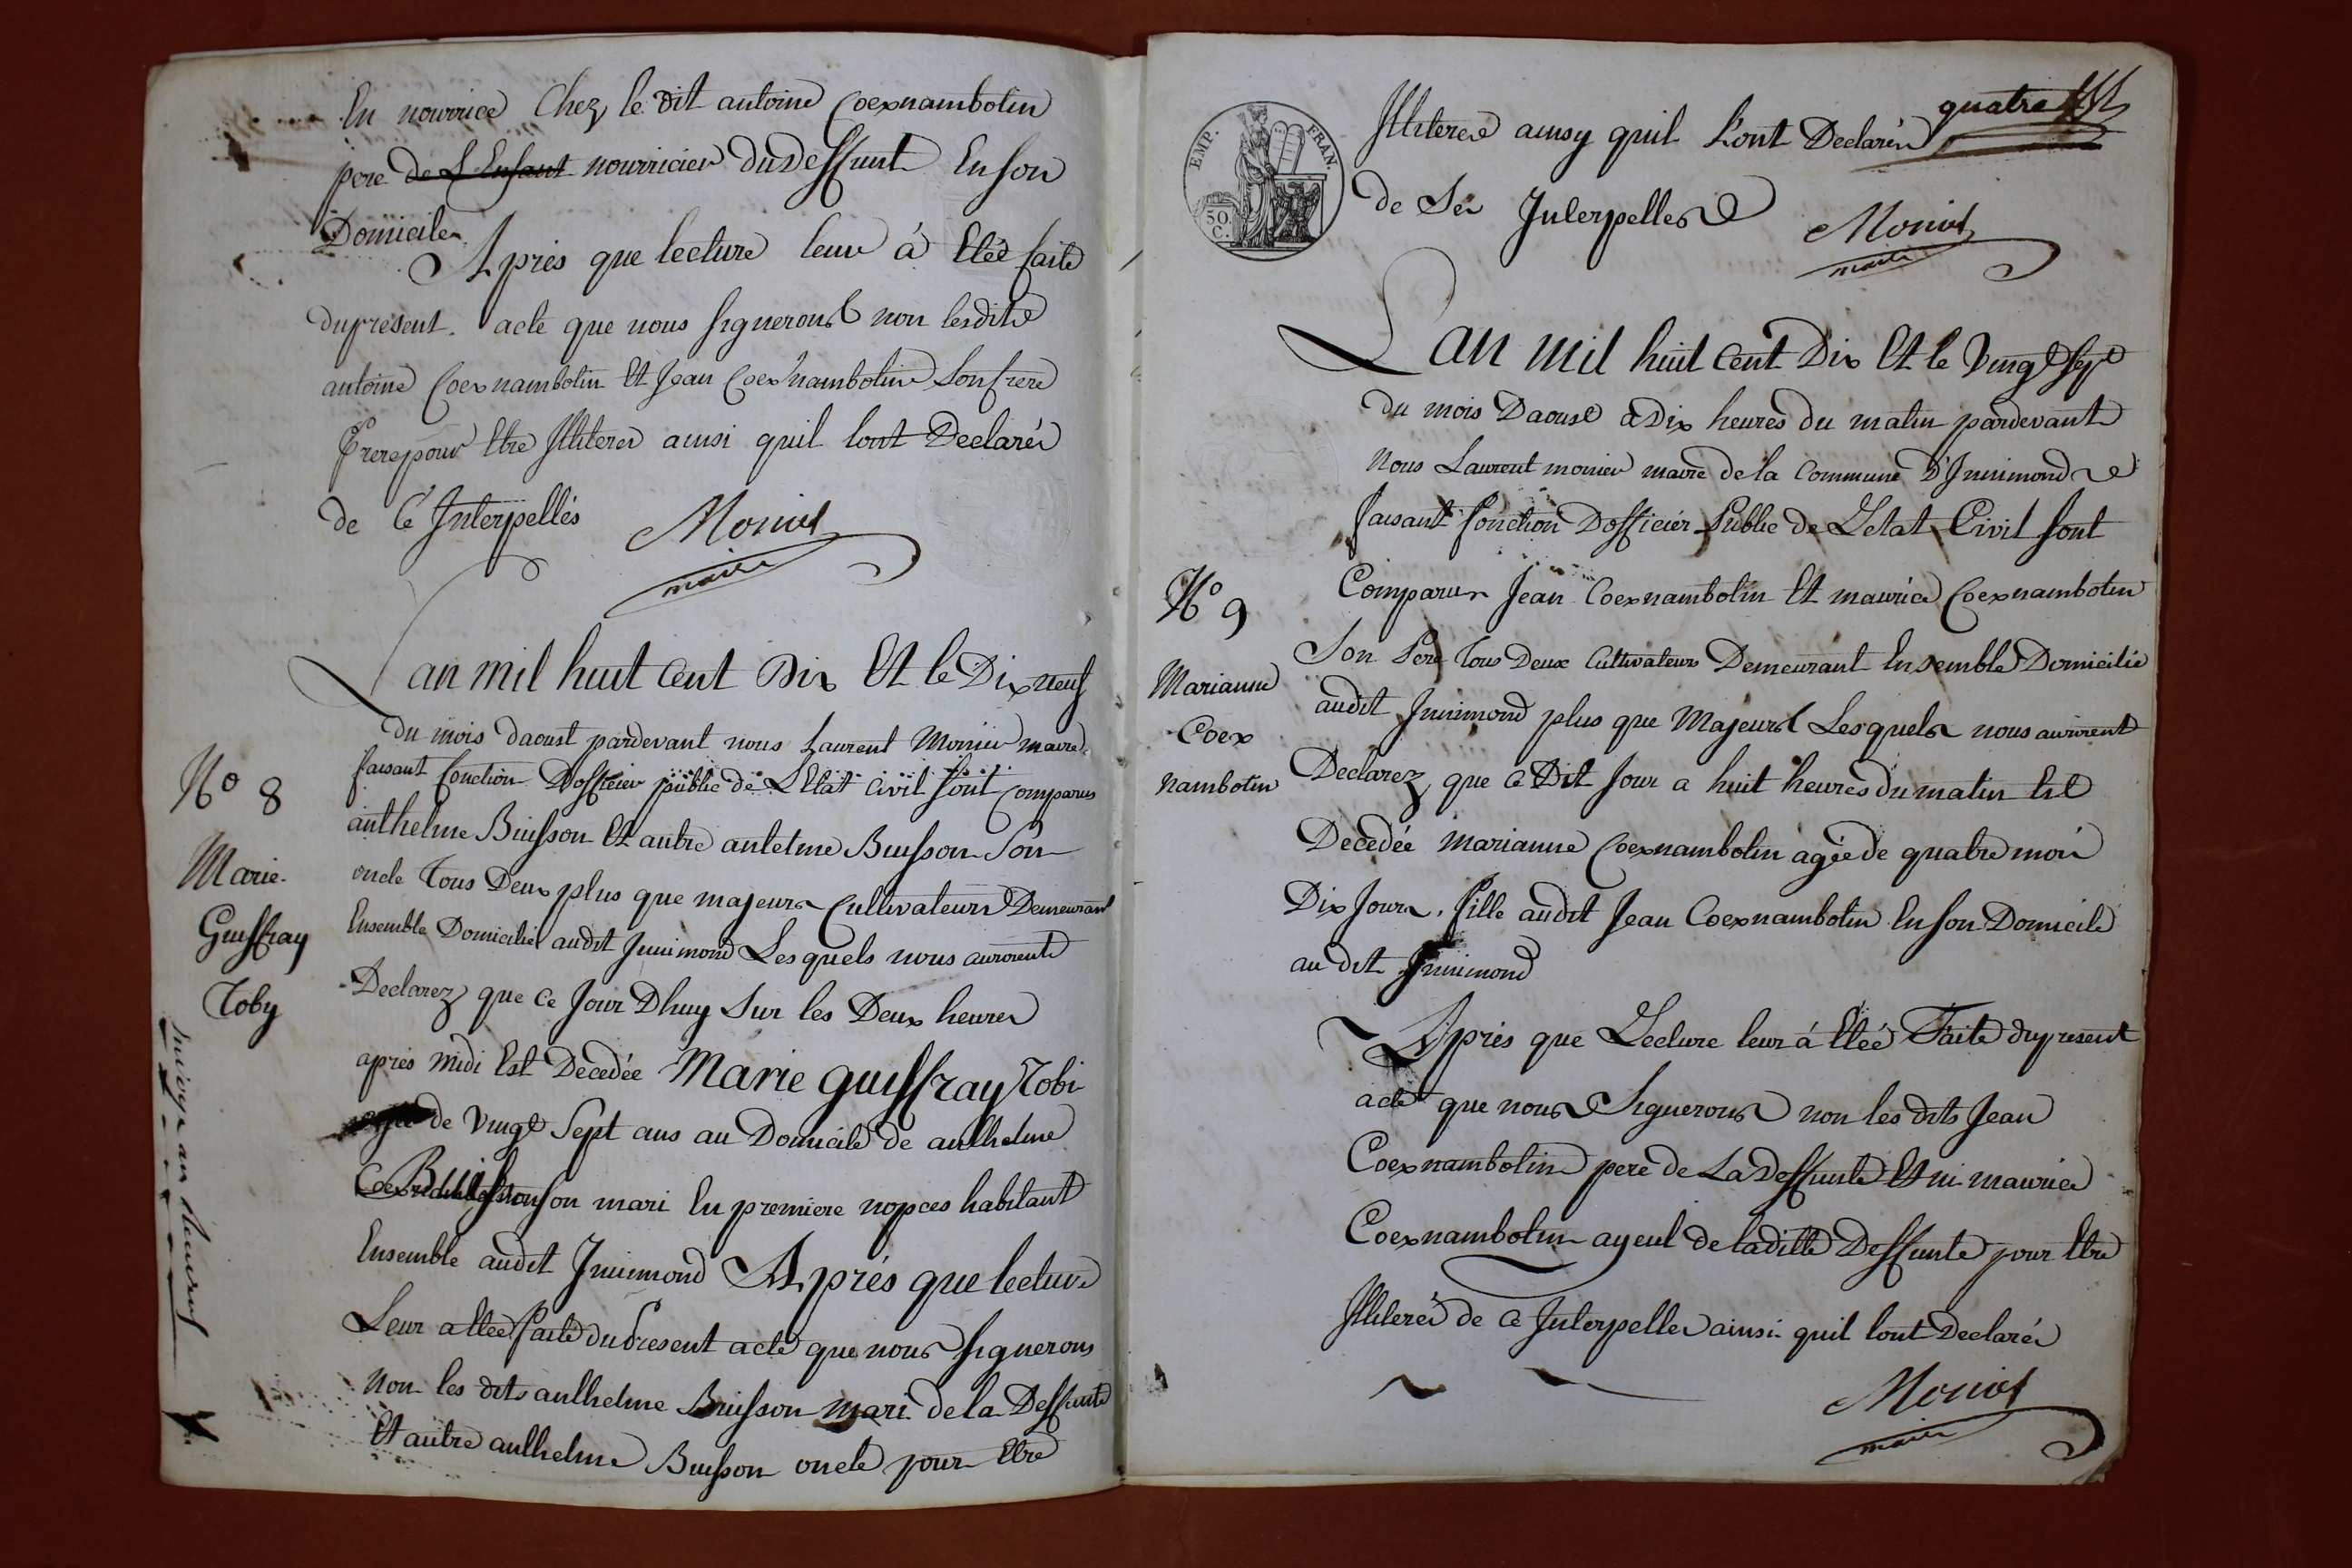 En nourrice Chez le dit antoine Coexnambotin
pere de L'Enfant nourricier du deffunt En son
Domicile
Après que lecture leur à Etéé faite
du présent acte que nous signerons non lesdits
antoine Coexnambotin Et Jean Coexnambotin son frere
frere pour Etre Illiterés ainsi quil lont Declarés
de Ce Interpellés
Monier
maire
Lan mil huit Cent Dix Et le Dix neuf
du mois daoust pardevant nous Laurent Monier maire
faisant fonction Dofficier public de L'Etat Civil sont Comparus
anthelme Buisson Et autre antelme Buisson son
oncle Tous Deux plus que majeurs Cultivateurs Demeurant
Ensemble Domicilié audit Jnnimond Lesquels nous auroient
Declarez que ce Jour Dhuy Sur les Deux heures
N° 8
Marie
Guiffray
Toby
après midi Est Decedée Marie guiffray Tobi
agée de Vingt Sept ans au Domicile de anthelme
Buisson son mari En premiere nopces habitant
Ensemble audit Jnnimond Après que lecture
Leur a Etéé faite du Present acte que nous signerons
non les dits anthelme Buisson mari de la Deffunte
Et autre anthelme Buisson oncle pour Etre
EMP. FRAN.
50. C.
quatre
Illiterés ainsy quil Lont Declarés
de Ce Interpellés
Monier
maire
Lan mil huit Cent Dix Et le Vingt Sept
du mois Daoust a Dix heures du matin pardevant
nous Laurent monier maire de la Commune D'Jnnimond
faisant fonction Dofficier Public de L'etat Civil sont
Comparus Jean Coexnambotin Et maurice Coexnambotin
Son Pere Tous Deux Cultivateurs Demeurant Ensemble Domicilié
audit Jnnimond plus que Majeurs Lesquels nous auroient
N° 9
Marianne
Coex
nambotin
Declarez que Ce Dit Jour a huit heures du matin Est
Decedée marianne Coexnambotin agée de quatre mois
Dix Jours, fille audit Jean Coexnambotin En son Domicile
au dit Jnnimond
Après que Lecture leur à Etéé Faite du present
acte que nous signerons non les dits Jean
Coexnambotin pere de La Deffunte Et ni maurice
Coexnambotin ayeul de laditte Deffunte pour Etre
Illiterés de Ce Interpellés ainsi quil lont Declarés
Monier
maire